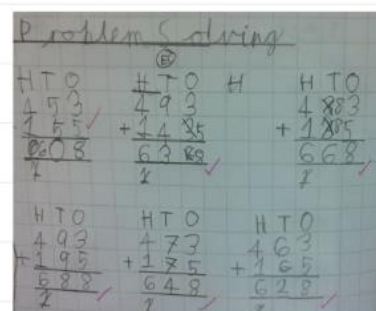 Problem Solving
H T O
4 5 3
1 5 5
6 0 8
1
H T O
4 9 3
+ 1 4 5
6 3 8
1
H
H T O
4 8 3
+ 1 8 5
6 6 8
1
H T O
4 9 3
+ 1 9 5
6 8 8
1
H T O
4 7 3
+ 1 7 5
6 4 8
1
H T O
4 6 3
+ 1 6 5
6 2 8
1